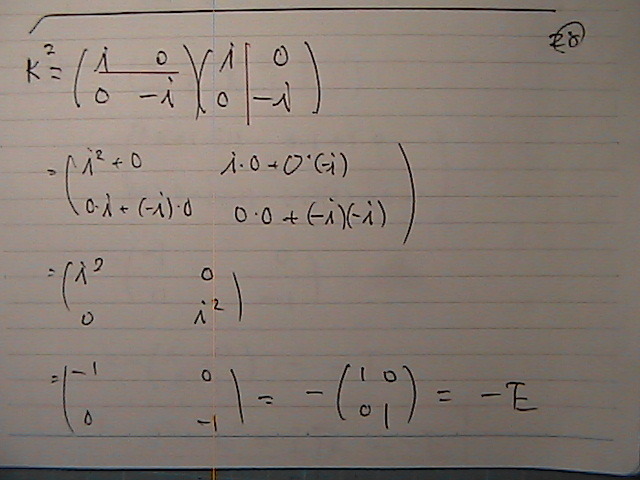 20
K² = ( i 0 ; 0 -i ) ( i 0 ; 0 -i )
= ( i² + 0  i·0 + 0·(-i) ; 0·i + (-i)·0  0·0 + (-i)(-i) )
= ( i² 0 ; 0 i² )
= ( -1 0 ; 0 -1 ) = - ( 1 0 ; 0 1 ) = -E